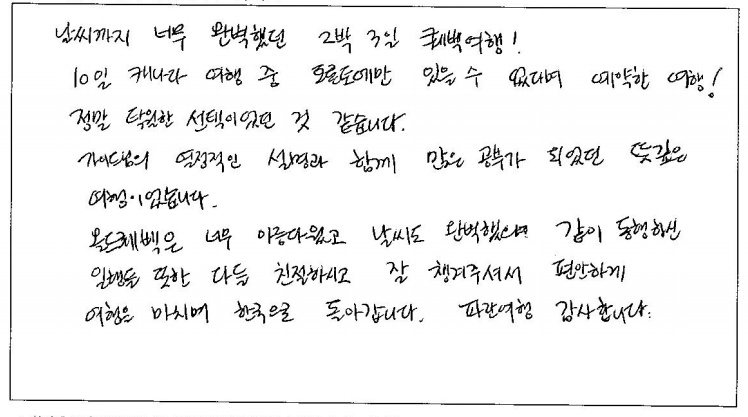 날씨까지 너무 완벽했던 2박 3일 퀘벡여행!
10일 캐나다 여행 중 토론토에만 있을 수 없다며 예약한 여행!
정말 탁월한 선택이었던 것 같습니다.
가이드님의 열정적인 설명과 함께 많은 공부가 되었던 뜻깊은
여행이었습니다.
올드퀘벡은 너무 아름다웠고 날씨도 완벽했으며 같이 동행하신
일행들 또한 다들 친절하시고 잘 챙겨주셔서 편안하게
여행을 마치며 한국으로 돌아갑니다. 파란여행 감사합니다.